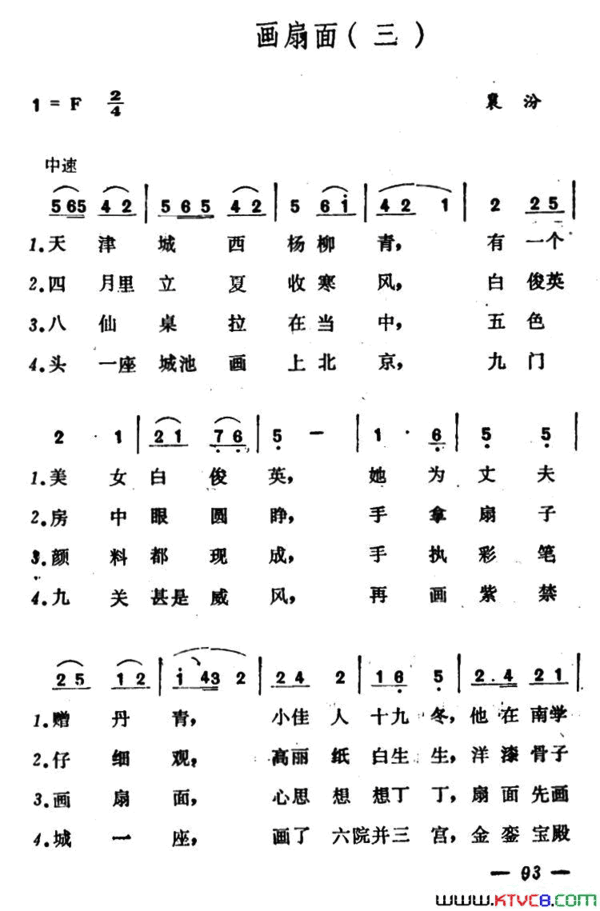 画扇面(三)
1=F 2/4
襄汾
中速
565 42 | 565 42 | 5 6i | 42 1 | 2 25 |
1.天津城西杨柳青，有一个
2.四月里立夏收寒风，白俊英
3.八仙桌拉在当中，五色
4.头一座城池画上北京，九门
2 · 1 | 21 76 | 5 — | 1 · 6 | 5 5 |
1.美女白俊英，她为丈夫
2.房中眼圆睁，手拿扇子
3.颜料都现成，手执彩笔
4.九关甚是威风，再画紫禁
25 12 | i 43 2 | 24 2 | 16 5 | 2.4 21 |
1.赠丹青，小佳人十九冬，他在南学
2.仔细观，高丽纸白生生，洋漆骨子
3.画扇面，心思想想丁丁，扇面先画
4.城一座，画了六院并三宫，金銮宝殿
— 93 —
www.KTVC8.com